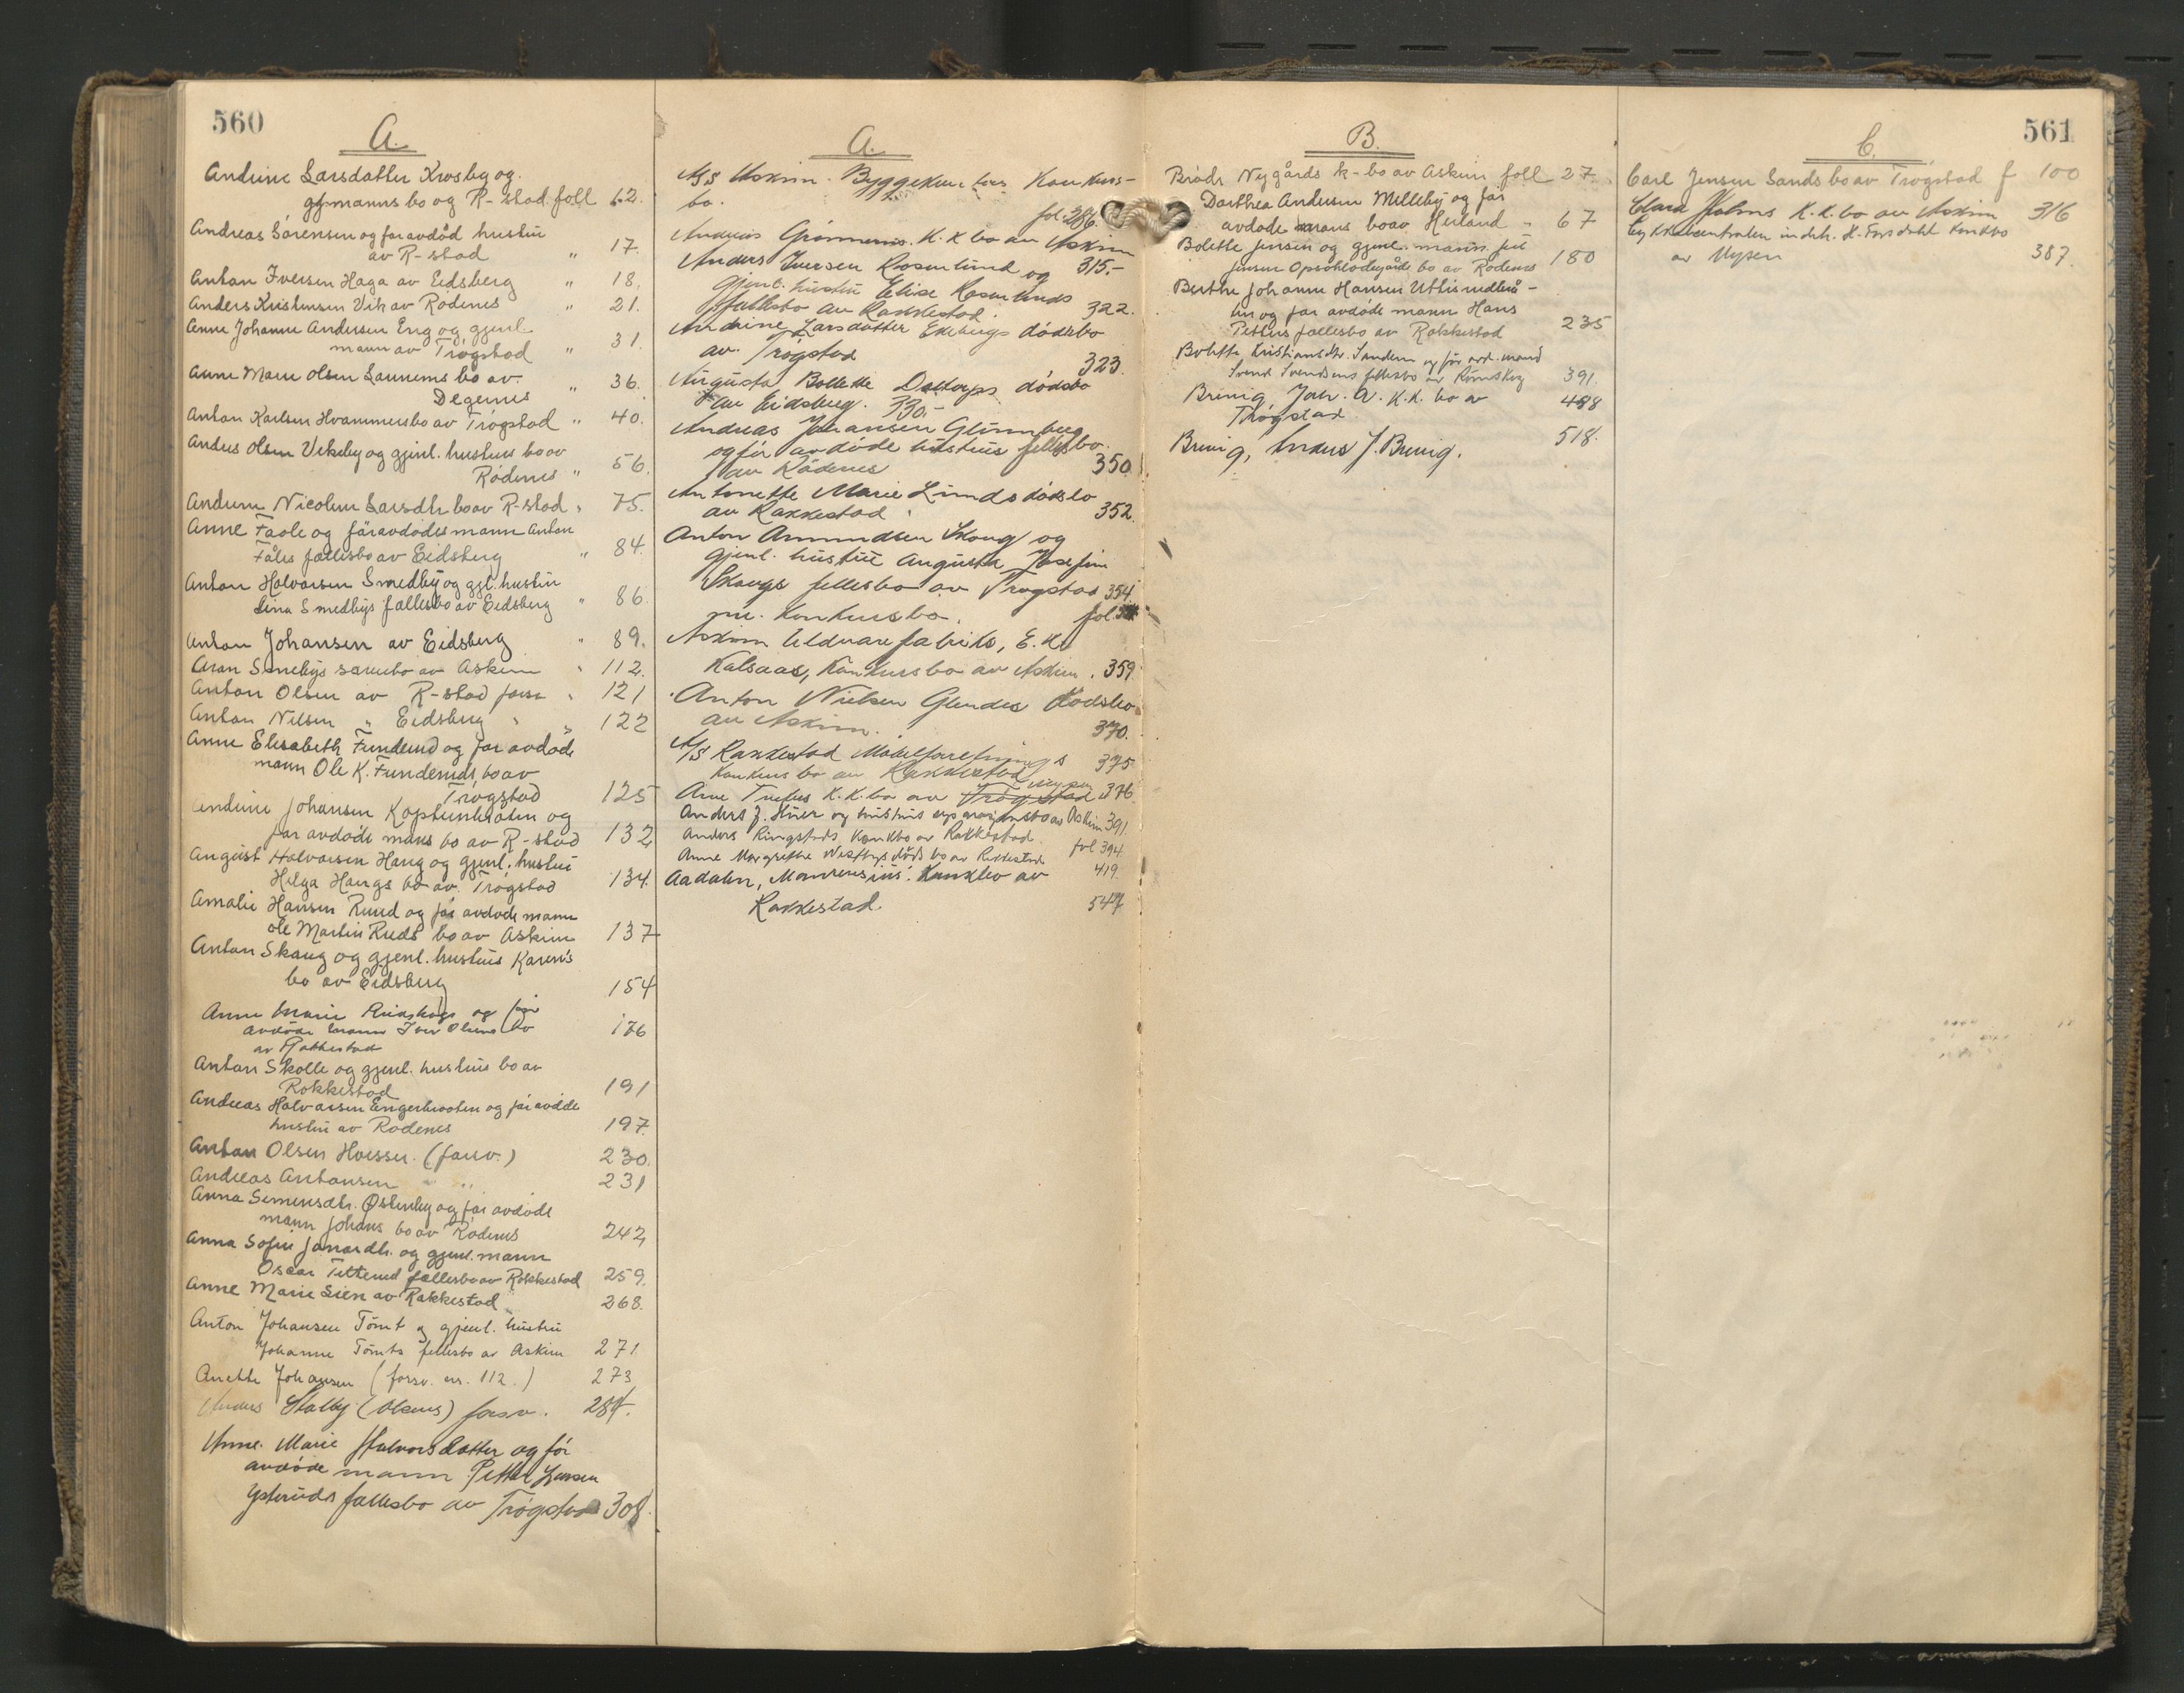 560
A.
Andrine Larsdatter Krosby og
gj. manns bo og R-stad foll 62.
Andreas Sørensen og før avdød hustru
av R-stad " 17.
Anton Iversen Haga av Eidsberg " 18.
Anders Kristensen Vik av Rødenes " 21.
Anne Johanne Andersen Eng og gjenl
mann av Trøgstad " 31.
Anne Marie Olsen Sannems bo av
Degernes " 36.
Anton Karlsen Hvammersbo av Trøgstad " 40.
Anders Olsen Vikeby og gjenl. hustrus bo av
Rødenes " 56.
Andrine Nicoline Larsdtr bo av R-stad " 75.
Anne Faale og før avdødes mann Anton
Fåles fællesbo av Eidsberg " 84.
Anton Halvorsen Smedby og gjl. hustru
Lina Smedbys fællesbo av Eidsberg " 86.
Anton Johansen av Eidsberg " 89.
Aron Sønebys samebo av Askim " 112.
Anton Olsen av R-stad forsv " 121
Anton Nilsen " Eidsberg " " 122
Anne Elisabeth Funderud og før avdøde
mann Ole K. Funderuds bo av
Trøgstad 125
Andrine Johansen Kopperudbråten og
før avdøde manns bo av R-stad 132
August Halvorsen Haug og gjenl. hustru
Helga Haugs bo av Trøgstad 134.
Amalie Hansen Ruud og før avdøde mann
Ole Martin Ruds bo av Askim 137
Anton Skaug og gjenl. hustrus Karen's
bo av Eidsberg 154
Anne Marie og før
avdøde mann Iver Olsens bo
av Rakkestad 176
Anton Skolle og gjenl. hustrus bo av
Rakkestad 191
Andreas Halvorsen Engerbråten og før avdøde
hustru av Rødenes 197.
Anton Olsen (forsv.) 230.
Andreas Antonsen " " 231
Anna Simensdtr. Østenby og før avdøde
mann Johans bo av Rødenes 242
Anna Sofie Jonasdtr. og gjenl. mann
Oscar Titterud fællesbo av Rakkestad 259.
Anne Marie Lien av Rakkestad 268.
Anton Johansen Tømt og gjenl. hustru
Johanne Tømts fellesbo av Askim 271
Anette Johansen (forsv. nr. 112.) 273
Anders Stalby (Olsens) forsv. 284.
Anne Marie Halvorsdatter og før
avdøde mann Petter Jensen
Ysteruds fællesbo av Trøgstad 308.
A.
A/S Askim Byggekontors Konkurs-
bo. fol. 286.
Andreas K.K. bo av Askim
315.-
Anders Iversen Rosenlund og
gjenl. hustru Elise Rosenlunds
fællesbo av Rakkestad. 322.
Andrine Larsdatter Ekebergs dødsbo
av Trøgstad 323.
Augusta Bolette Dæhlorps dødsbo
av Eidsberg. 330.-
Andreas Johansen
og før avdøde hustrus fellesbo.
av Rødenes 350.
Antonette Marie Linds dødsbo
av Rakkestad 352.
Anton Amundsen Skaug og
gjenl. hustru Augusta Josefine
Skaugs fellesbo av Trøgstad 354.
konkursbo. fol.
Askim Uldvarefabriks, E. Kr.
Kalsaas, Konkursbo av Askim. 359.
Anton Nielsen Glendes Dødsbo
av Askim. 370.
A/S Rakkestad Møbelforretnings
Konkursbo av Rakkestad 375
Arne K.K. bo av Trøgstad Mysen 376.
Anders J. og hustrus bo av Askim 391.
Anders Ringstads Konkbo av Rakkestad. fol 394.
Anne Margrethe Westbys døds bo av Rakkestad. 419.
Aadalen, Maurensius: Konkbo av
Rakkestad. 547
B.
Brødr Nygårds k-bo av Askim foll 27.
Dorthea Andersen Melleby og før
avdøde manns bo av Heiland " 67
Bolette Jensen og gjenl. manns Jul
Jensen bo av Rødenes 180
Berthe Johanne Hansen
og før avdøde mann Hans
Petters fællesbo av Rakkestad 235
Bolette Kristiansdtr. Sanden og før avd. mand
Svend Svendsens fellesbo av Rømskog 391.
Breivig, Joh. A. K.K. bo av 488
Trøgstad
Breivig, Anders J. Breivig. 518.
561
C.
Carl Jensen Sands bo av Trøgstad f 100
Clara Holms K.K. bo av Askim 316
Cykkelcentralen indeh. K. Forsdahl konkbo
av Mysen 387.